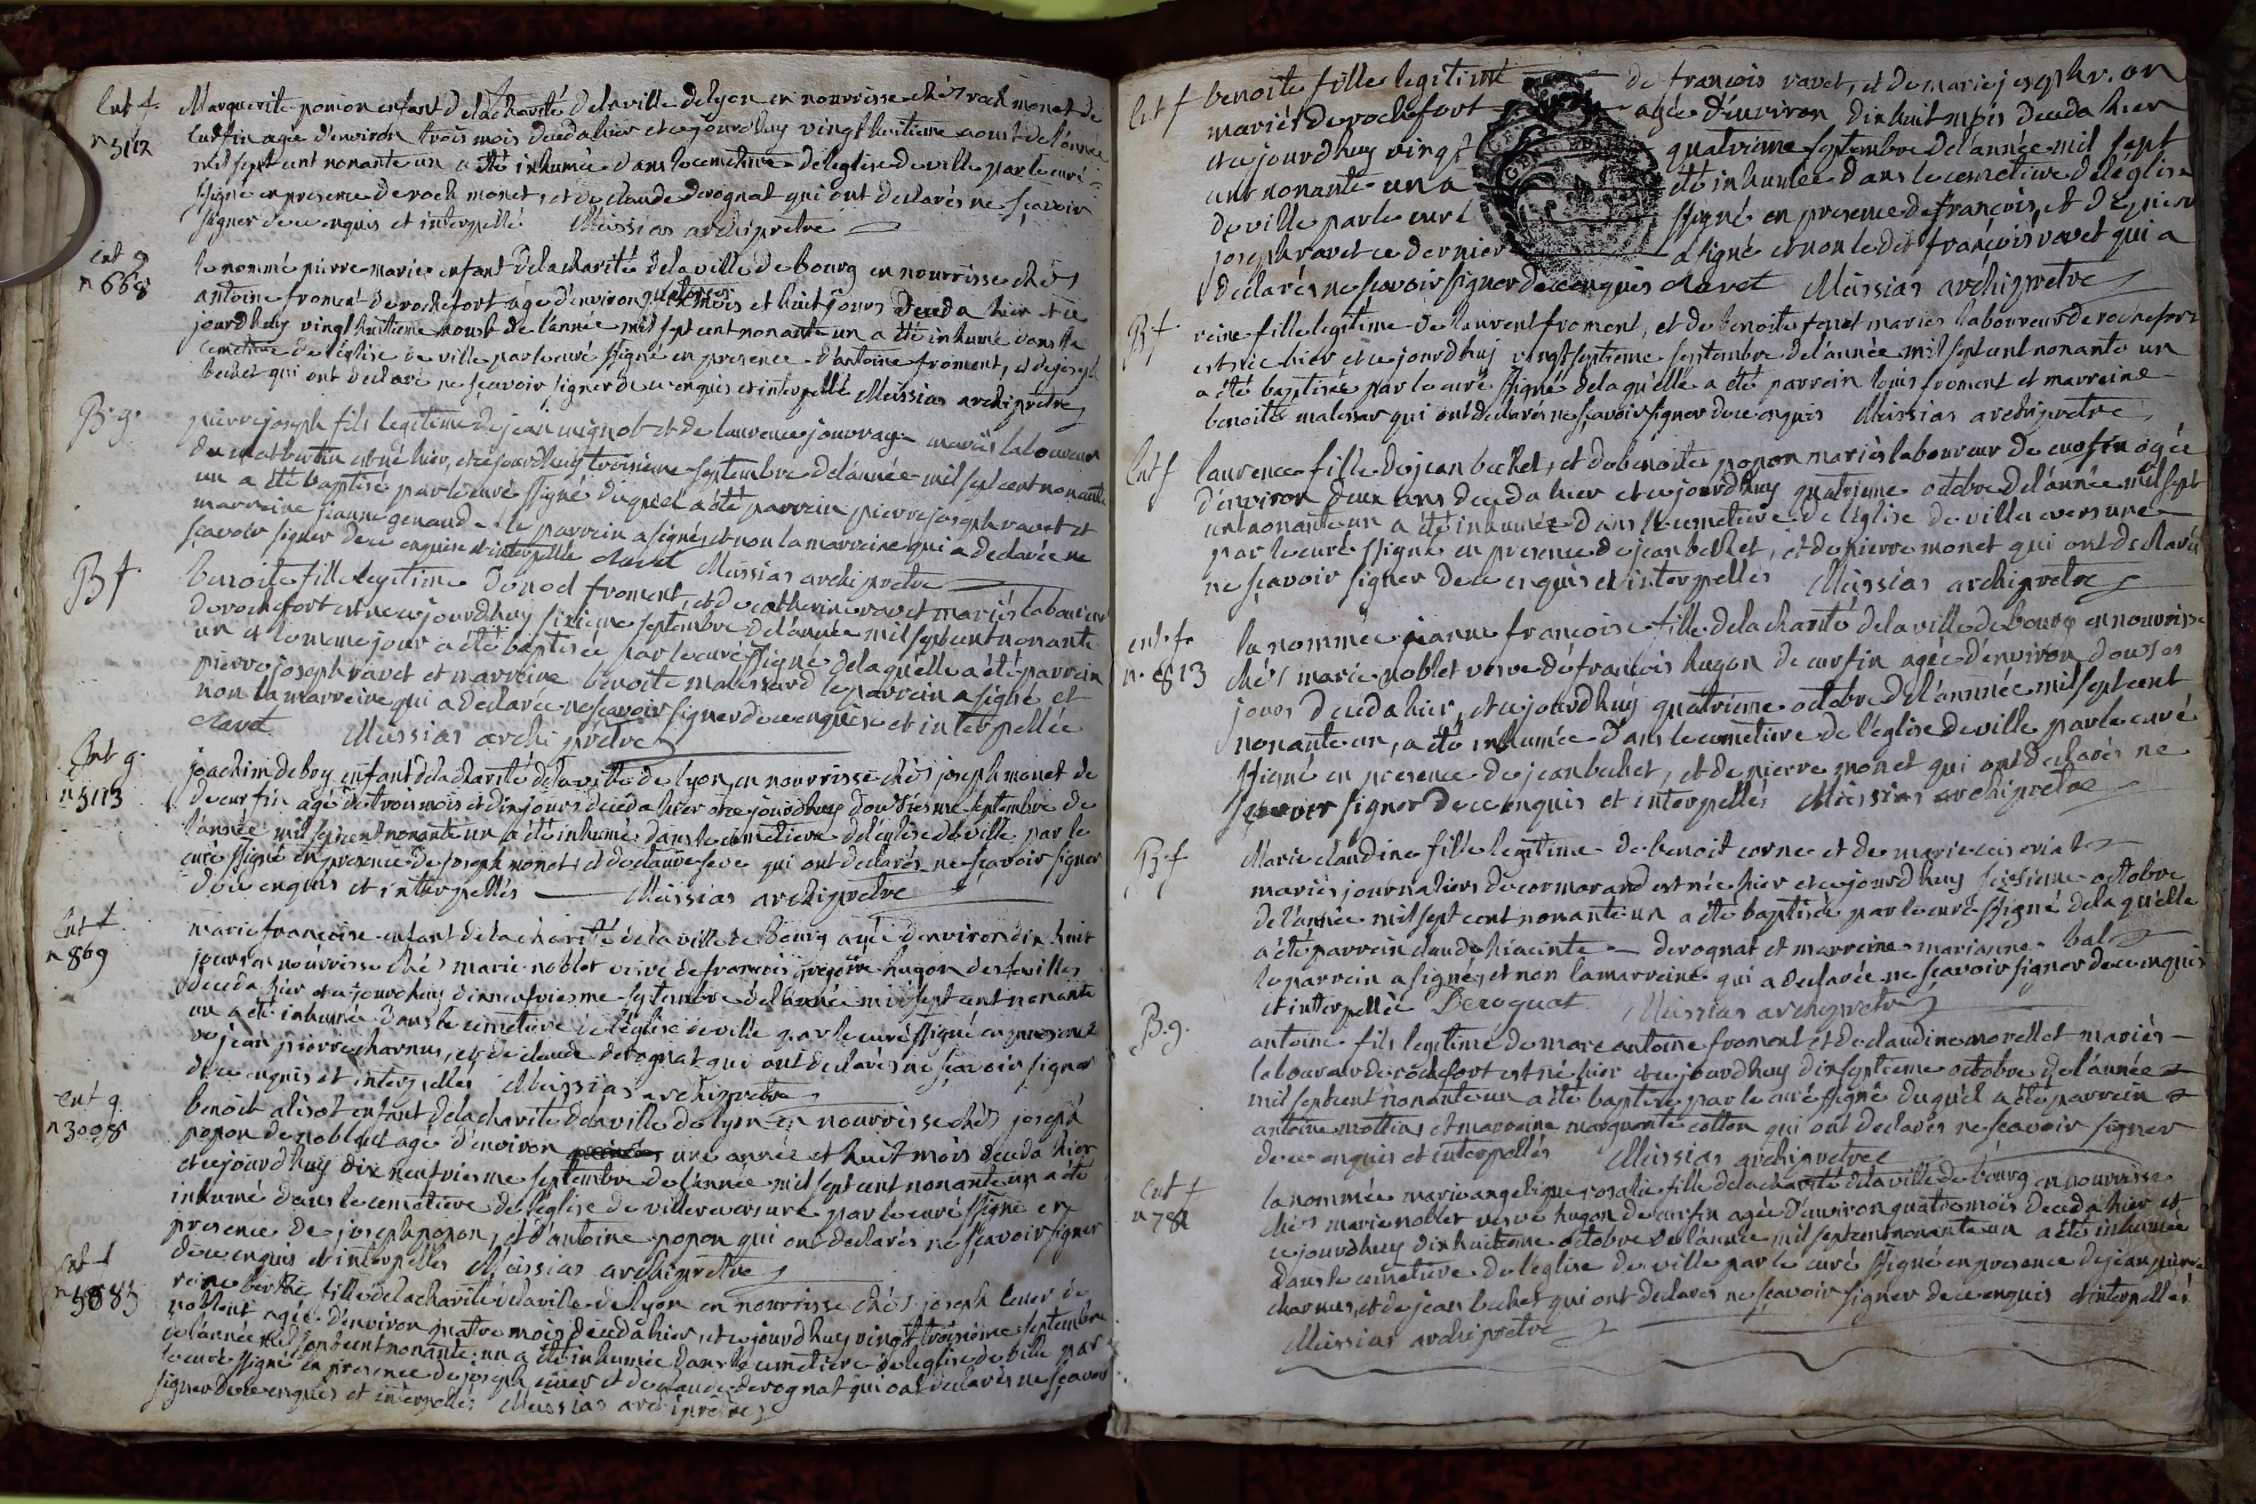 Ent f. Marguerite ponçon enfant de la charité de la ville de lyon en nourrisse chés roch monet de
n 5112 Curfin agée d'environ trois mois deceda hier et ce jourdhuy vingt huitieme aoust de l'année
mil sept cent nonante un a été inhumée dans le cemetiere de l'eglise de ville par le curé
ssigné en presence de roch monet, et de claude derognat qui ont declarés ne sçavoir
signer de ce enquis et interpellé Messias archipretre
Ent g. le nommé pierre marie enfant de la charité de la ville de bourg en nourrisse chés
n 668 antoine froment de rochefort agé d'environ mois et huit jours deceda hier et ce
jourdhuy vingt huitieme aoust de l'année mil sept cent nonante un a été inhumé dans le
cemetiere de l'église de ville par le curé ssigné en presence d'antoine froment, et de joseph
bechet qui ont declaré ne sçavoir signer de ce enquis et interpellé Messias archipretre
B. g. pierre joseph fils legitime de jean mignot et de laurence jouvray mariés laboureur
de est né hier, et ce jourdhuy troisieme septembre de l'année mil sept cent nonante
un a été baptisé par le curé ssigné duquel a été parrein pierre joseph ravet et
marreine jeanne genaud le parrein a signé, et non la marreine qui a declarée ne
sçavoir signer de ce enquise et interpellée Ravet Messias archipretre
B f benoite fille legitime de noel froment, et de catherine ravet mariés laboureur
de rochefort est nee ce jourdhuy sixieme septembre de l'année mil sept cent nonante
un et le meme jour a été baptisée par le curé ssigné de laquelle a été parrein
pierre joseph ravet et marreine benoite malessard le parrein a signé et
non la marreine qui a declarée ne sçavoir signer de ce enquise et interpellée
Ravet Messias archipretre
Ent g. joachim deboy enfant de la charité de la ville de lyon en nourrisse chés joseph monet de
n 5113 de curfin agé de trois mois et dix jours deceda hier et ce jourdhuy douziesme septembre de
l'année mil sept cent nonante un a été inhumé dans le cemetiere de l'église de ville par le
curé ssigné en presence de joseph monet, et de claude seve qui ont declarés ne sçavoir signer
de ce enquis et interpellés Messias archipretre
Ent f. marie françoise enfant de la charité de la ville de Bourg agée d'environ dix huit
n 869 jours en nourrisse chés marie noblet veuve de françois gregoire hugon des feuilles
deceda hier et ce jourdhuy dixneufviesme septembre de l'année mil sept cent nonante
un a été inhumée dans le cemetiere de l'église de ville par le curé ssigné en presence
de jean pierre charnus, et de claude derognat qui ont declarés ne sçavoir signer
de ce enquis et interpellés Messias archipretre
Ent g. benoit alisot enfant de la charité de la ville de lyon en nourrisse chés joseph
n 3098 popon de noblent agé d'environ une année et huit mois deceda hier
et ce jourdhuy dix neufviesme septembre de l'année mil sept cent nonante un a été
inhumé dans le cemetiere de l'église de villereversure par le curé ssigné en
presence de joseph popon, et d'antoine popon qui ont declarés ne sçavoir signer
de ce enquis et interpellés Messias archipretre
Ent f reine berthe fille de la charité de la ville de lyon en nourrisse chés joseph de
n 5083 noblent agée d'environ quatre mois deceda hier, et ce jourdhuy vingt troisieme septembre
de l'année mil sept cent nonante un a été inhumée dans le cemetiere de l'eglise de ville par
le curé ssigné en presence de joseph et de claude derognat qui ont declarés ne sçavoir
signer de ce enquis et interpellés Messias archipretre
Ent f benoite fille legitime de françois ravet, et de marie
mariés de rochefort agée d'environ dix huit mois deceda hier
et ce jourdhuy vingt quatrieme septembre de l'année mil sept
cent nonante un a été inhumée dans le cemetiere de l'église
de ville par le curé ssigné en presence de françois, et de pierre
joseph ravet ce dernier a signé et non le dit françois ravet qui a
declarés ne sçavoir signer de ce enquis Ravet Messias archipretre
B f reine fille legitime de laurent froment, et de benoite mariés laboureur de rochefort
est née hier et ce jourdhuy vingt septieme septembre de l'année mil sept cent nonante un
a été baptisée par le curé ssigné de laquelle a été parrein louis froment et marreine
benoite malessar qui ont declarés ne sçavoir signer de ce enquis Messias archipretre
Ent f laurence fille de jean bechet, et de benoite popon mariés laboureur de curfin agée
d'environ deux ans deceda hier et ce jourdhuy quatrieme octobre de l'année mil sept
cent nonante un a été inhumée dans le cemetiere de l'église de ville reversure
par le curé ssigné en presence de jean bechet, et de pierre monet qui ont declarés
ne sçavoir signer de ce enquis et interpellés Messias archipretre
ent. f. la nommée jeanne françoise fille de la charité de la ville de bourg en nourrisse
n. 813 chés marie noblet veuve de françois hugon de curfin agée d'environ douses
jours deceda hier, et ce jourdhuy quatrieme octobre de l'année mil sept cent
nonante un, a été inhumée dans le cemetiere de l'église de ville par le curé
ssigné en presence de jean bechet, et de pierre monet qui ont declarés ne
sçavoir signer de ce enquis et interpellés Messias archipretre
B. f Marie claudine fille legitime de benoit corne et de marie
mariés journaliers de cormorand est née hier et ce jourdhuy seisieme octobre
de l'année mil sept cent nonante un a été baptisée par le curé ssigné de laquelle
a été parrein claude hiacinte derognat et marreine marianne bal
le parrein a signé, et non la marreine qui a declarée ne sçavoir signer de ce enquis
et interpellée Derognat Messias archipretre
B. g. antoine fils legitime de marc antoine froment et de claudine morellet mariés
laboureur de rochefort est né hier et ce jourdhuy dixseptieme octobre de l'année
mil sept cent nonante un a été baptisé par le curé ssigné duquel a été parrein
antoine mottins et marreine marguerite cotton qui ont declarés ne sçavoir signer
de ce enquis et interpellés Messias archipretre
Ent f la nommée marie angelique rosalie fille de la charité de la ville de bourg en nourrisse
n 781 chés marie noblet veuve hugon de curfin agée d'environ quatre mois deceda hier et
ce jourdhuy dix huitieme octobre de l'année mil sept cent nonante un a été inhumée
dans le cemetiere de l'eglise de ville par le curé ssigné en presence de jean pierre
charnus, et de jean bechet qui ont declarés ne sçavoir signer de ce enquis et interpellés
Messias archipretre